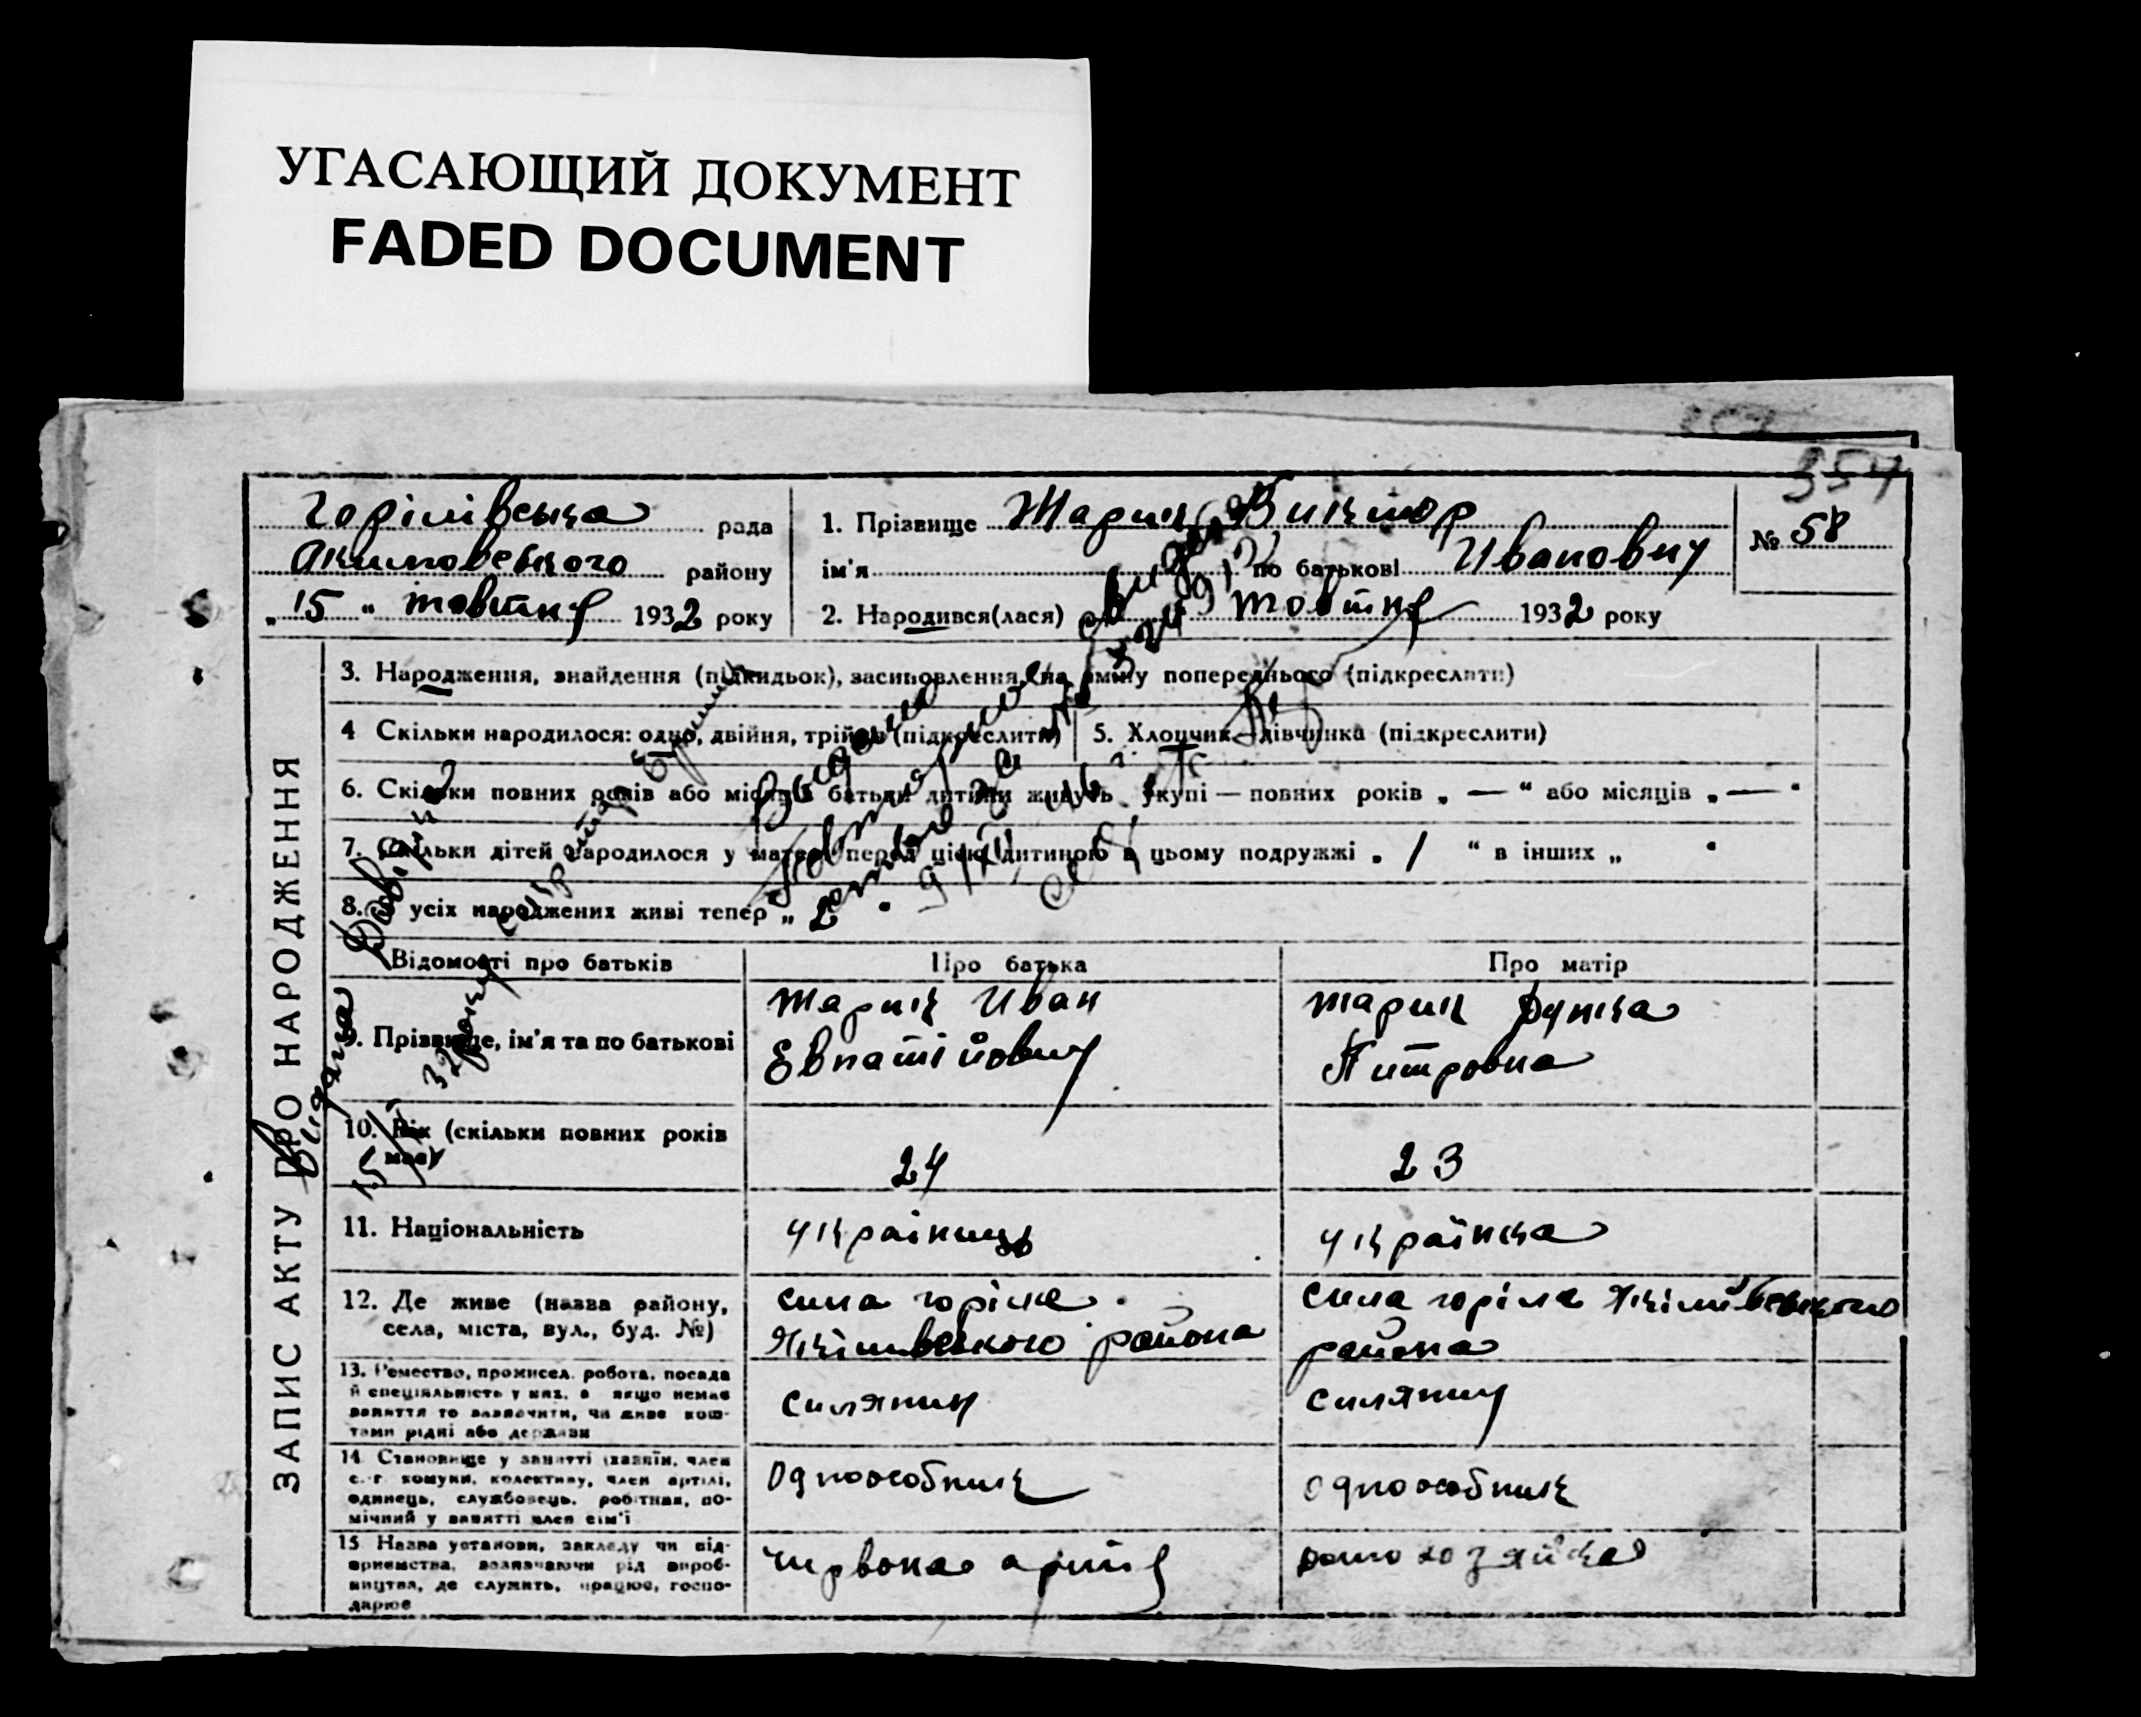 УГАСАЮЩИЙ ДОКУМЕНТ
FADED DOCUMENT
354
Горілівська рада
Акимовського району
„ 15 “ жовтня 1932 року
1. Прізвище Жарик Виктор
ім'я по батькові Иванович
2. Народився(лася) жовтня 1932 року
№ 58
ЗАПИС АКТУ ПРО НАРОДЖЕННЯ
3. Народження, знайдення (підкидьок), засиновлення, на зміну попереднього (підкреслити)
4 Скільки народилося: одно, двійня, трійня (підкреслити)
5. Хлопчик—дівчинка (підкреслити)
6. Скільки повних років або місяців батьки дитини живуть укупі — повних років „ — “ або місяців „ — “
7. Скільки дітей народилося у матери перед цією дитиною в цьому подружжі „ 1 “ в інших „ “
8. З усіх народжених живі тепер „ 2 “
Видана
Повторно
Відомості про батьків
Про батька
Про матір
9. Прізвище, ім'я та по батькові
Жарик Иван
Евпатійович
Жарик
Питровна
10. Вік (скільки повних років має)
24
23
11. Національність
украіниць
украінка
12. Де живе (назва району, села, міста, вул., буд. №)
сила горіле
Якімивського района
сила горіле Якімивського
района
13. Ремество, промисел, робота, посада й спеціяльність у них, а якщо немає заняття то зазначити, чи живе коштами рідні або держави
силянин
силянич
14. Становище у занятті (хазяїн, член с.-г. комуни, колективу, член артілі, одинець, службовець, робітник, помічний у занятті член сім'ї
Одноособник
одноособник
15 Назва установи, закладу чи підприємства, зазначаючи рід виробництва, де служить, працює, господарює
Чирвона армія
домохозяйка
Видана